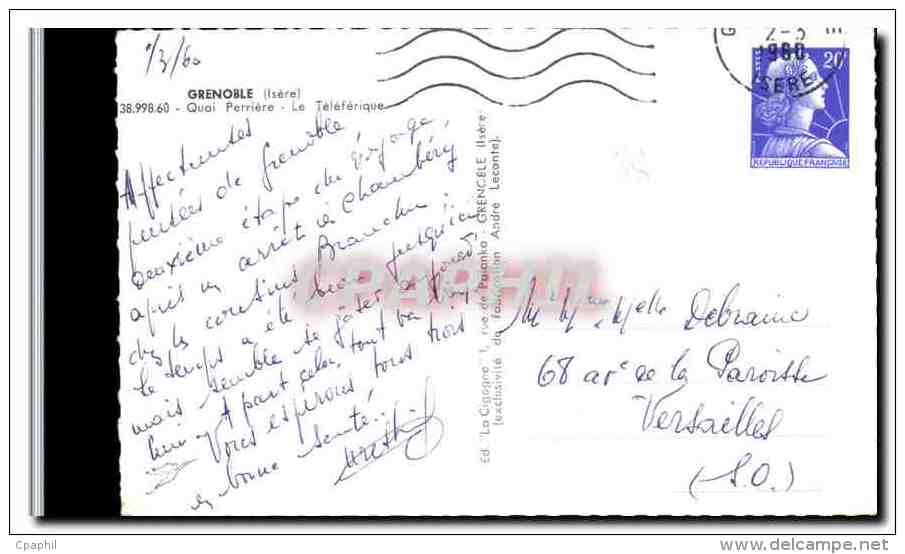 1/3/60
GRENOBLE (Isère)
38.998.60 - Quai Perrière - Le Téléférique
Affectueuses
pensées de Grenoble,
deuxième étape du voyage,
après un arrêt à Chambéry
chez les cousins
le temps a été bien jusqu'ici
mais semble se gâter aujourd'
hui. A part cela, tout va bien.
Vous espérons tous trois
en bonne santé.
Ed. "La Cigogne" 1, rue de Palanka - GRENOBLE (Isère)
(exclusivité de fabrication André Leconte)
2-3
1960
ISERE
20F
REPUBLIQUE FRANÇAISE
CPAPHIL
Mr Mme Melle Debraine
68 av. de la Paroisse
Versailles
(S.O.)
Cpaphil
http://www.delcampe.net